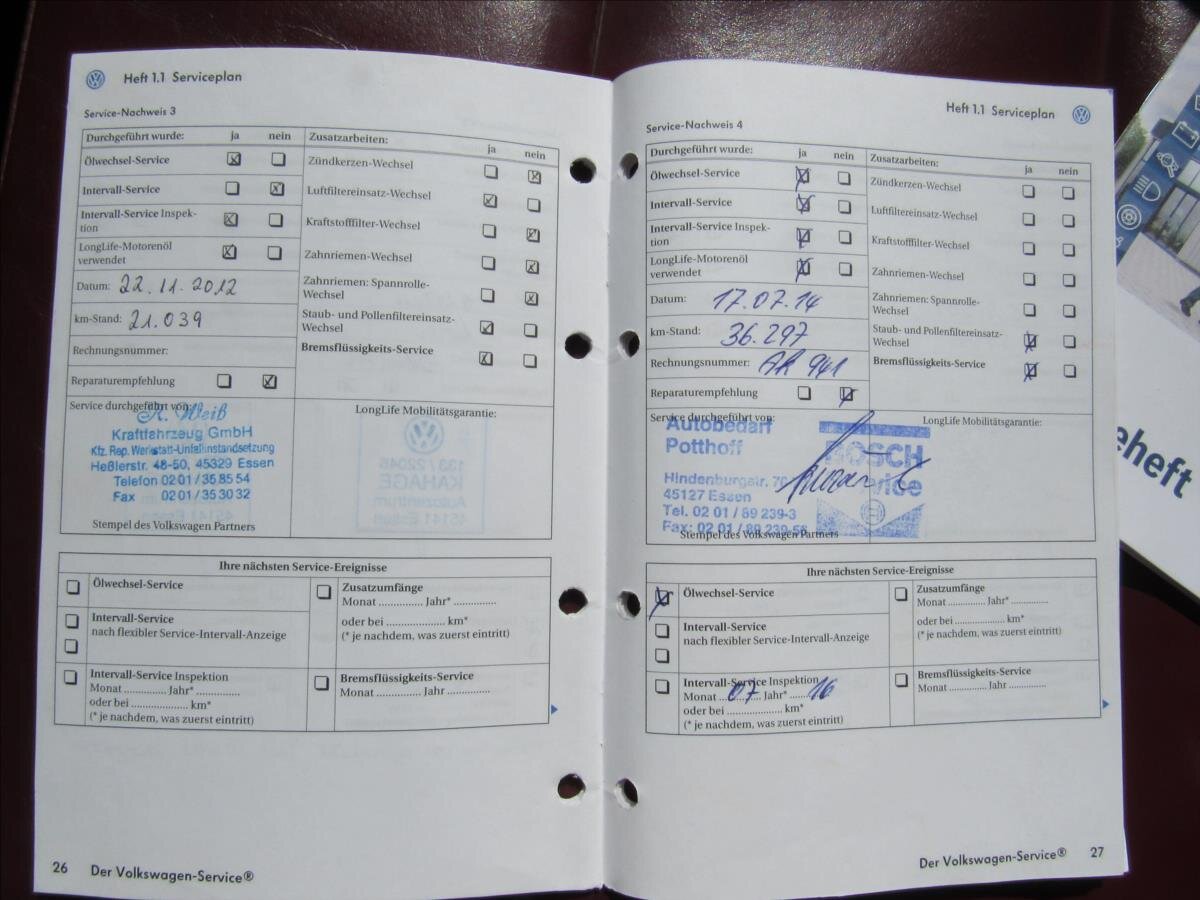 Heft 1.1 Serviceplan
Service-Nachweis 3
Durchgeführt wurde: ja nein
Ölwechsel-Service
Intervall-Service
Intervall-Service Inspek-
tion
LongLife-Motorenöl
verwendet
Datum: 22.11.2012
km-Stand: 21.039
Rechnungsnummer:
Reparaturempfehlung
Zusatzarbeiten: ja nein
Zündkerzen-Wechsel
Luftfiltereinsatz-Wechsel
Kraftstofffilter-Wechsel
Zahnriemen-Wechsel
Zahnriemen: Spannrolle-
Wechsel
Staub- und Pollenfiltereinsatz-
Wechsel
Bremsflüssigkeits-Service
Service durchgeführt von:
A. Weiß
Kraftfahrzeug GmbH
Kfz. Rep. Werkstatt-Unfallinstandsetzung
Heßlerstr. 48-50, 45329 Essen
Telefon 02 01 / 35 85 54
Fax 02 01 / 35 30 32
Stempel des Volkswagen Partners
LongLife Mobilitätsgarantie:
Ihre nächsten Service-Ereignisse
Ölwechsel-Service
Intervall-Service
nach flexibler Service-Intervall-Anzeige
Intervall-Service Inspektion
Monat .............. Jahr* ..............
oder bei .................... km*
(* je nachdem, was zuerst eintritt)
Zusatzumfänge
Monat .............. Jahr* ..............
oder bei .................... km*
(* je nachdem, was zuerst eintritt)
Bremsflüssigkeits-Service
Monat .............. Jahr ..............
26 Der Volkswagen-Service®
Heft 1.1 Serviceplan
Service-Nachweis 4
Durchgeführt wurde: ja nein
Ölwechsel-Service
Intervall-Service
Intervall-Service Inspek-
tion
LongLife-Motorenöl
verwendet
Datum: 17.07.14
km-Stand: 36.297
Rechnungsnummer: AR 941
Reparaturempfehlung
Zusatzarbeiten: ja nein
Zündkerzen-Wechsel
Luftfiltereinsatz-Wechsel
Kraftstofffilter-Wechsel
Zahnriemen-Wechsel
Zahnriemen: Spannrolle-
Wechsel
Staub- und Pollenfiltereinsatz-
Wechsel
Bremsflüssigkeits-Service
Service durchgeführt von:
Autobedarf
Potthoff
Hindenburgstr.
45127 Essen
Tel. 02 01 / 89 239-3
Fax: 02 01 / 89 239-56
BOSCH
Service
Stempel des Volkswagen Partners
LongLife Mobilitätsgarantie:
Ihre nächsten Service-Ereignisse
Ölwechsel-Service
Intervall-Service
nach flexibler Service-Intervall-Anzeige
Intervall-Service Inspektion
Monat ...07... Jahr* ...16
oder bei .................... km*
(* je nachdem, was zuerst eintritt)
Zusatzumfänge
Monat .............. Jahr* ..............
oder bei .................... km*
(* je nachdem, was zuerst eintritt)
Bremsflüssigkeits-Service
Monat .............. Jahr ..............
Der Volkswagen-Service® 27
eheft